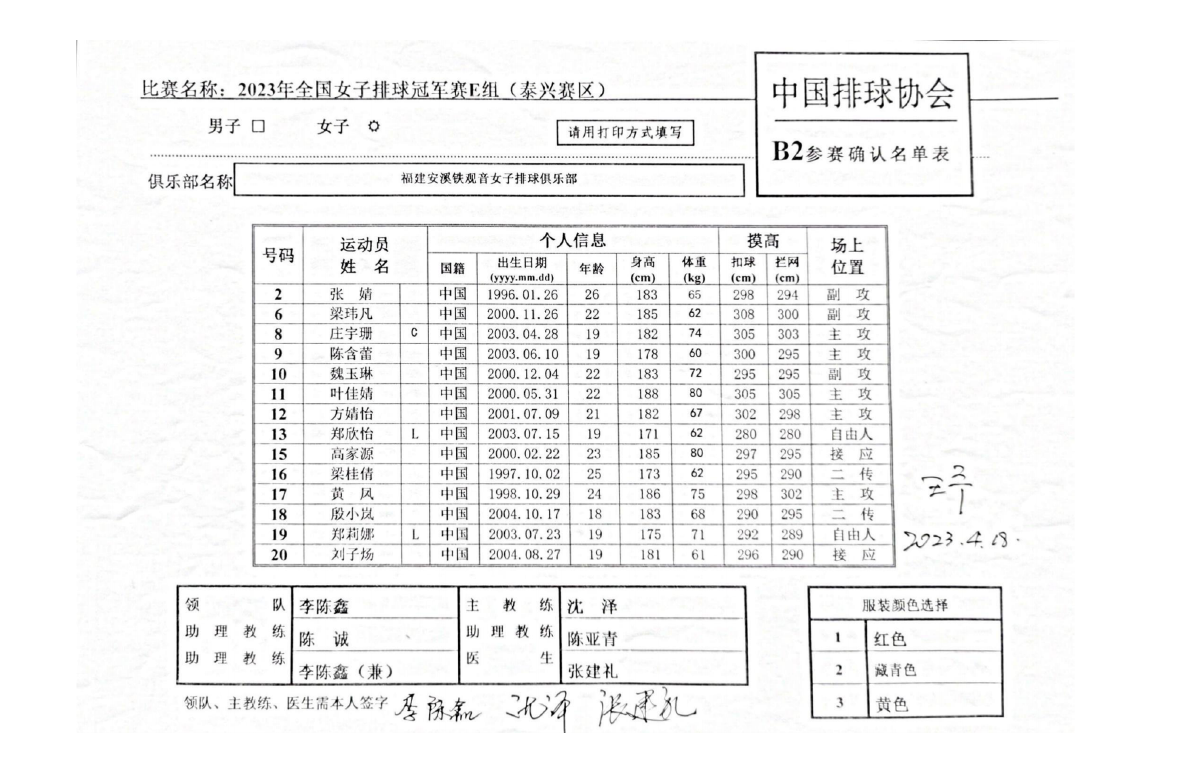 比赛名称：2023年全国女子排球冠军赛E组（泰兴赛区）
中国排球协会
男子 □ 女子 ✿
请用打印方式填写
B2参赛确认名单表
俱乐部名称 福建安溪铁观音女子排球俱乐部
号码 运动员姓名 个人信息 摸高 场上位置
国籍 出生日期(yyyy.mm.dd) 年龄 身高(cm) 体重(kg) 扣球(cm) 拦网(cm)
2 张 婧 中国 1996.01.26 26 183 65 298 294 副 攻
6 梁玮凡 中国 2000.11.26 22 185 62 308 300 副 攻
8 庄宇珊 C 中国 2003.04.28 19 182 74 305 303 主 攻
9 陈含蕾 中国 2003.06.10 19 178 60 300 295 主 攻
10 魏玉琳 中国 2000.12.04 22 183 72 295 295 副 攻
11 叶佳婧 中国 2000.05.31 22 188 80 305 305 主 攻
12 方婧怡 中国 2001.07.09 21 182 67 302 298 主 攻
13 郑欣怡 L 中国 2003.07.15 19 171 62 280 280 自由人
15 高家源 中国 2000.02.22 23 185 80 297 295 接 应
16 梁桂倩 中国 1997.10.02 25 173 62 295 290 二 传
17 黄 凤 中国 1998.10.29 24 186 75 298 302 主 攻
18 殷小岚 中国 2004.10.17 18 183 68 290 295 二 传
19 郑莉娜 L 中国 2003.07.23 19 175 71 292 289 自由人
20 刘子炀 中国 2004.08.27 19 181 61 296 290 接 应
2023.4.18.
领 队 李陈鑫 主 教 练 沈 泽
助 理 教 练 陈 诚 助 理 教 练 陈亚青
助 理 教 练 李陈鑫（兼） 医 生 张建礼
服装颜色选择
1 红色
2 藏青色
3 黄色
领队、主教练、医生需本人签字 李陈鑫 沈泽 张建礼